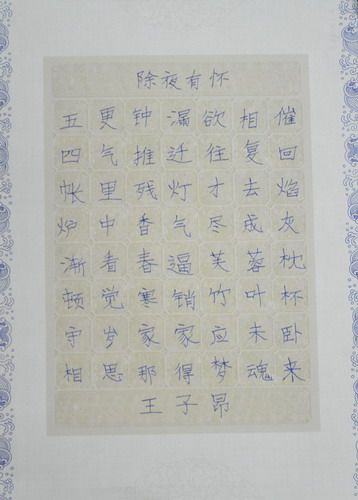 除夜有怀
五更钟漏欲相催
四气推迁往复回
帐里残灯才去焰
炉中香气尽成灰
渐看春逼芙蓉枕
顿觉寒销竹叶杯
守岁家家应未卧
相思那得梦魂来
王子昂